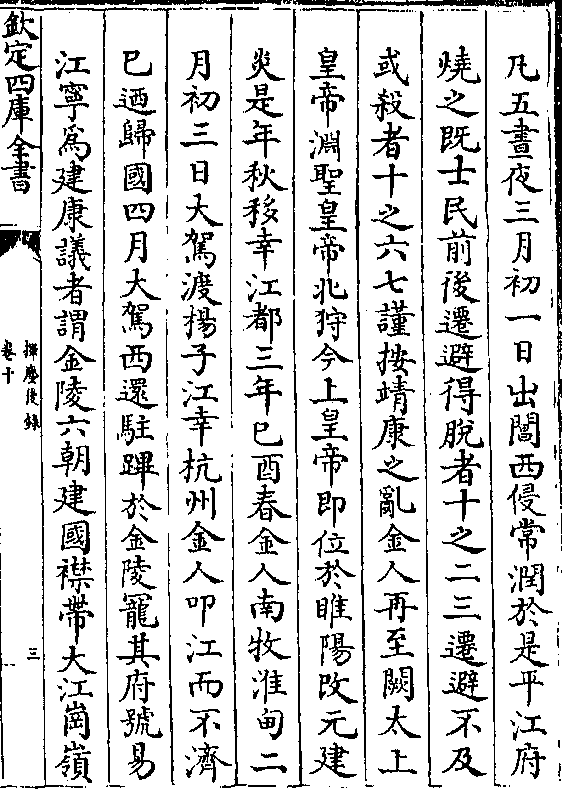 凡五晝夜三月初一日出閶西侵常潤於是平江府
燒之既士民前後遷避得脫者十之二三遷避不及
或殺者十之六七謹按靖康之亂金人再至闕太上
皇帝淵聖皇帝北狩今上皇帝即位於睢陽改元建
炎是年秋移幸江都三年己酉春金人南牧淮甸二
月初三日大駕渡揚子江幸杭州金人叩江而不濟
已迺歸國四月大駕西還駐蹕於金陵寵其府號易
江寧為建康議者謂金陵六朝建國襟帶大江崗嶺
欽定四庫全書
揮麈後錄
卷十
三